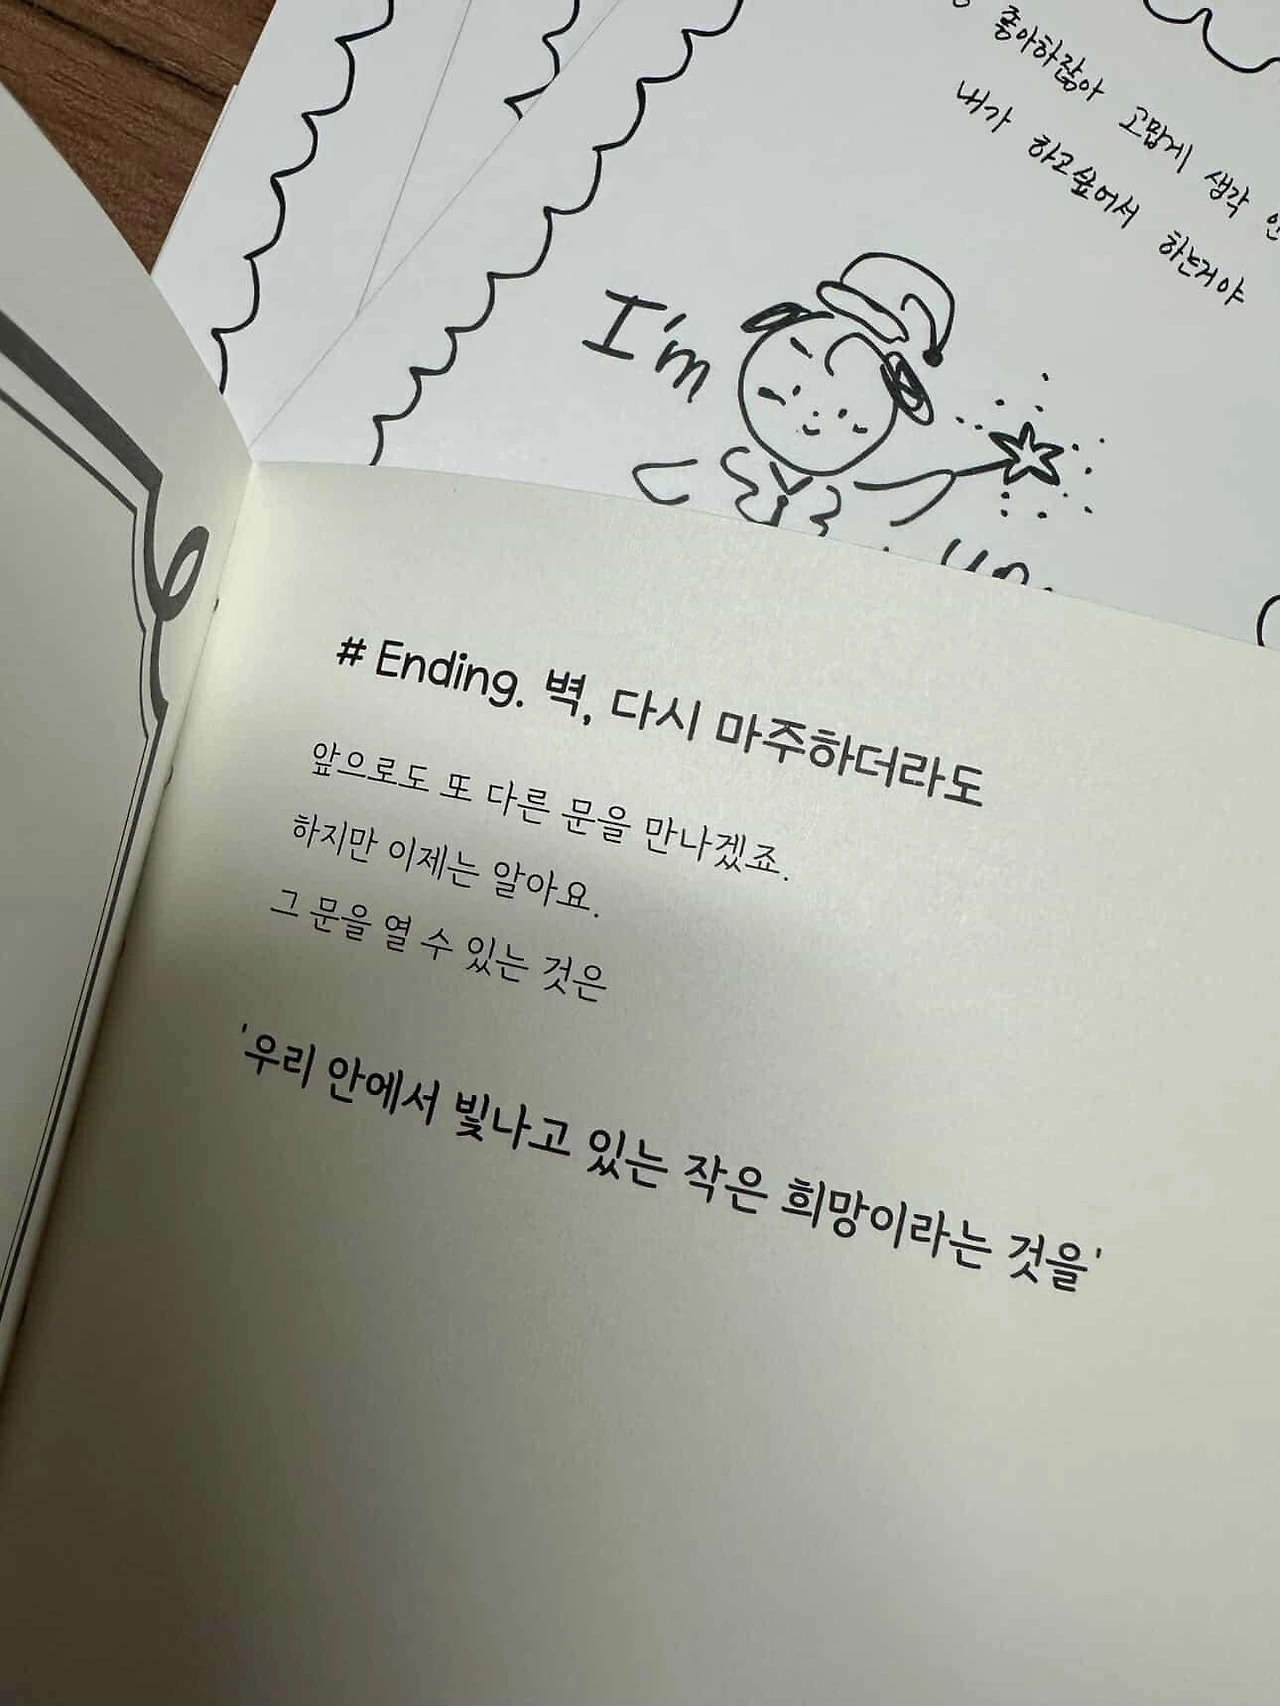 좋아하잖아 고맙게 생각
내가 하고싶어서 하는거야
I'm
# Ending. 벽, 다시 마주하더라도
앞으로도 또 다른 문을 만나겠죠.
하지만 이제는 알아요.
그 문을 열 수 있는 것은
'우리 안에서 빛나고 있는 작은 희망이라는 것을'